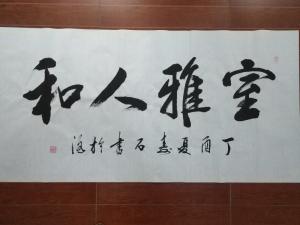 室雅人和
丁酉夏 石书于